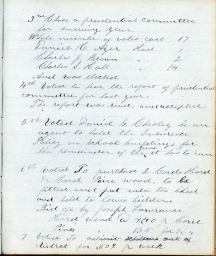 3rd Chose a prudential committee
for ensuing year
Whole number of votes cast 17
Daniel C. Ager had
Charles J. Brown " 2
Charles S. Hall "
And was elected
4th Voted to hear the report of prudential
committee for last year
The report was read and accepted
5th Voted Daniel G. as an
agent to hold the Insurance
Policy on school buildings for
the remainder of the it has to run
6th Voted To purchase 2 Cords Hard
& Cord Pine wood, to be
fitted and put into the shed
and sold to lowest bidder
Bid off by Joseph
Hard wood @ Cord
Pine "
7 Voted To admit scholars out of
district for 50¢ a week